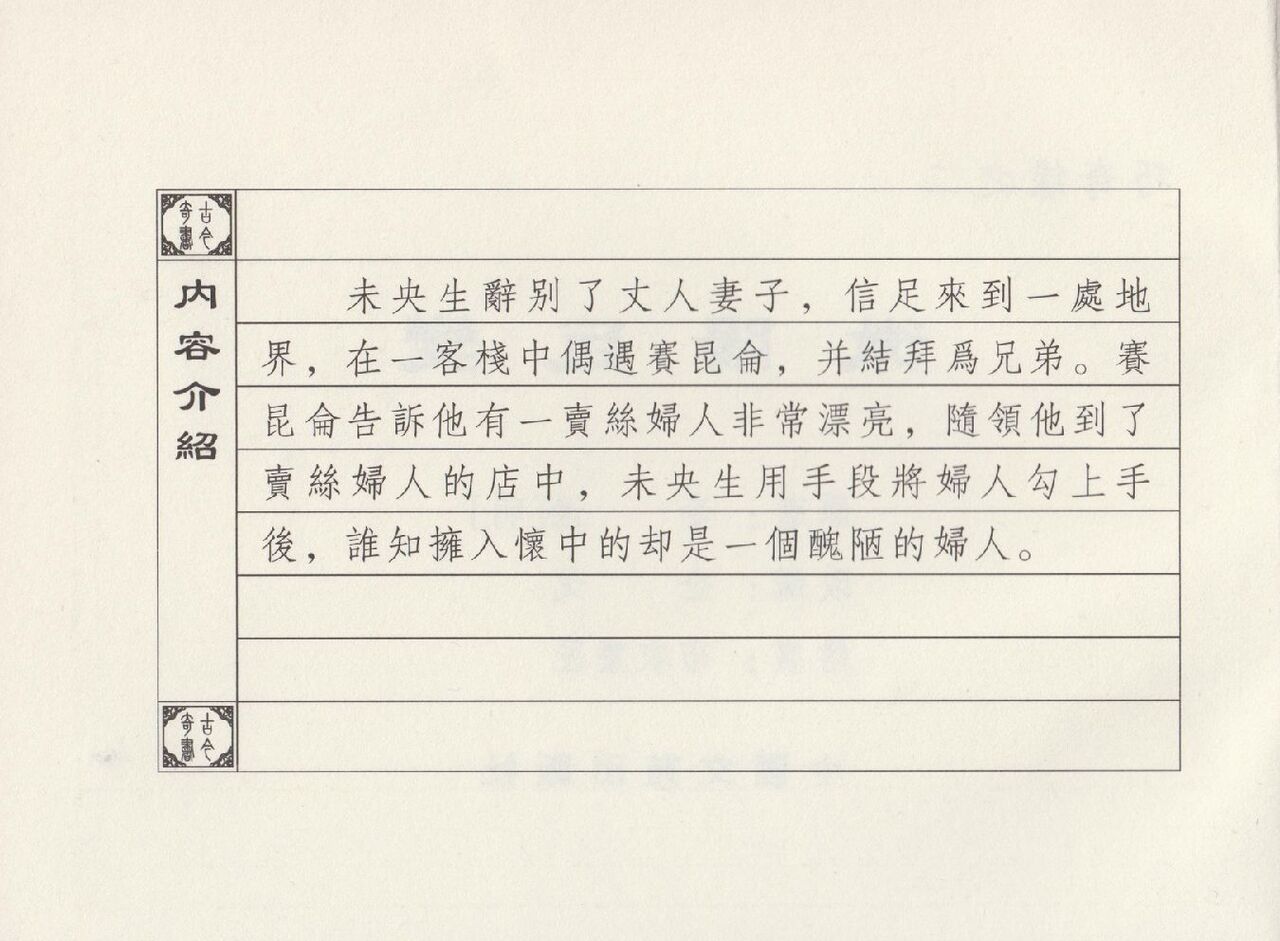 古今
奇書
内容介紹
未央生辭別了丈人妻子，信足來到一處地
界，在一客棧中偶遇賽昆侖，并結拜爲兄弟。賽
昆侖告訴他有一賣絲婦人非常漂亮，隨領他到了
賣絲婦人的店中，未央生用手段將婦人勾上手
後，誰知擁入懷中的却是一個醜陋的婦人。
古今
奇書